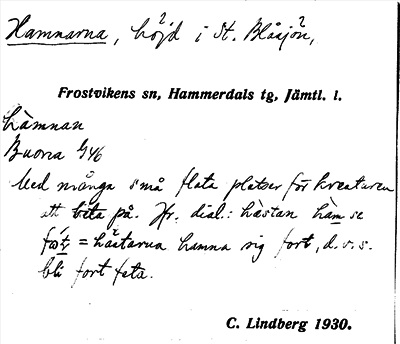 Hamnarna, höjd i St. Blåsjön,
Frostvikens sn, Hammerdals tg, Jämtl. l.
hàmnan
Buona 9/46
Med många små flata platser för kreaturen
att beta på. Jfr. dial.: hästan hàm se
= hästarna hamna sig fort, d.v.s.
bli fort feta.
C. Lindberg 1930.